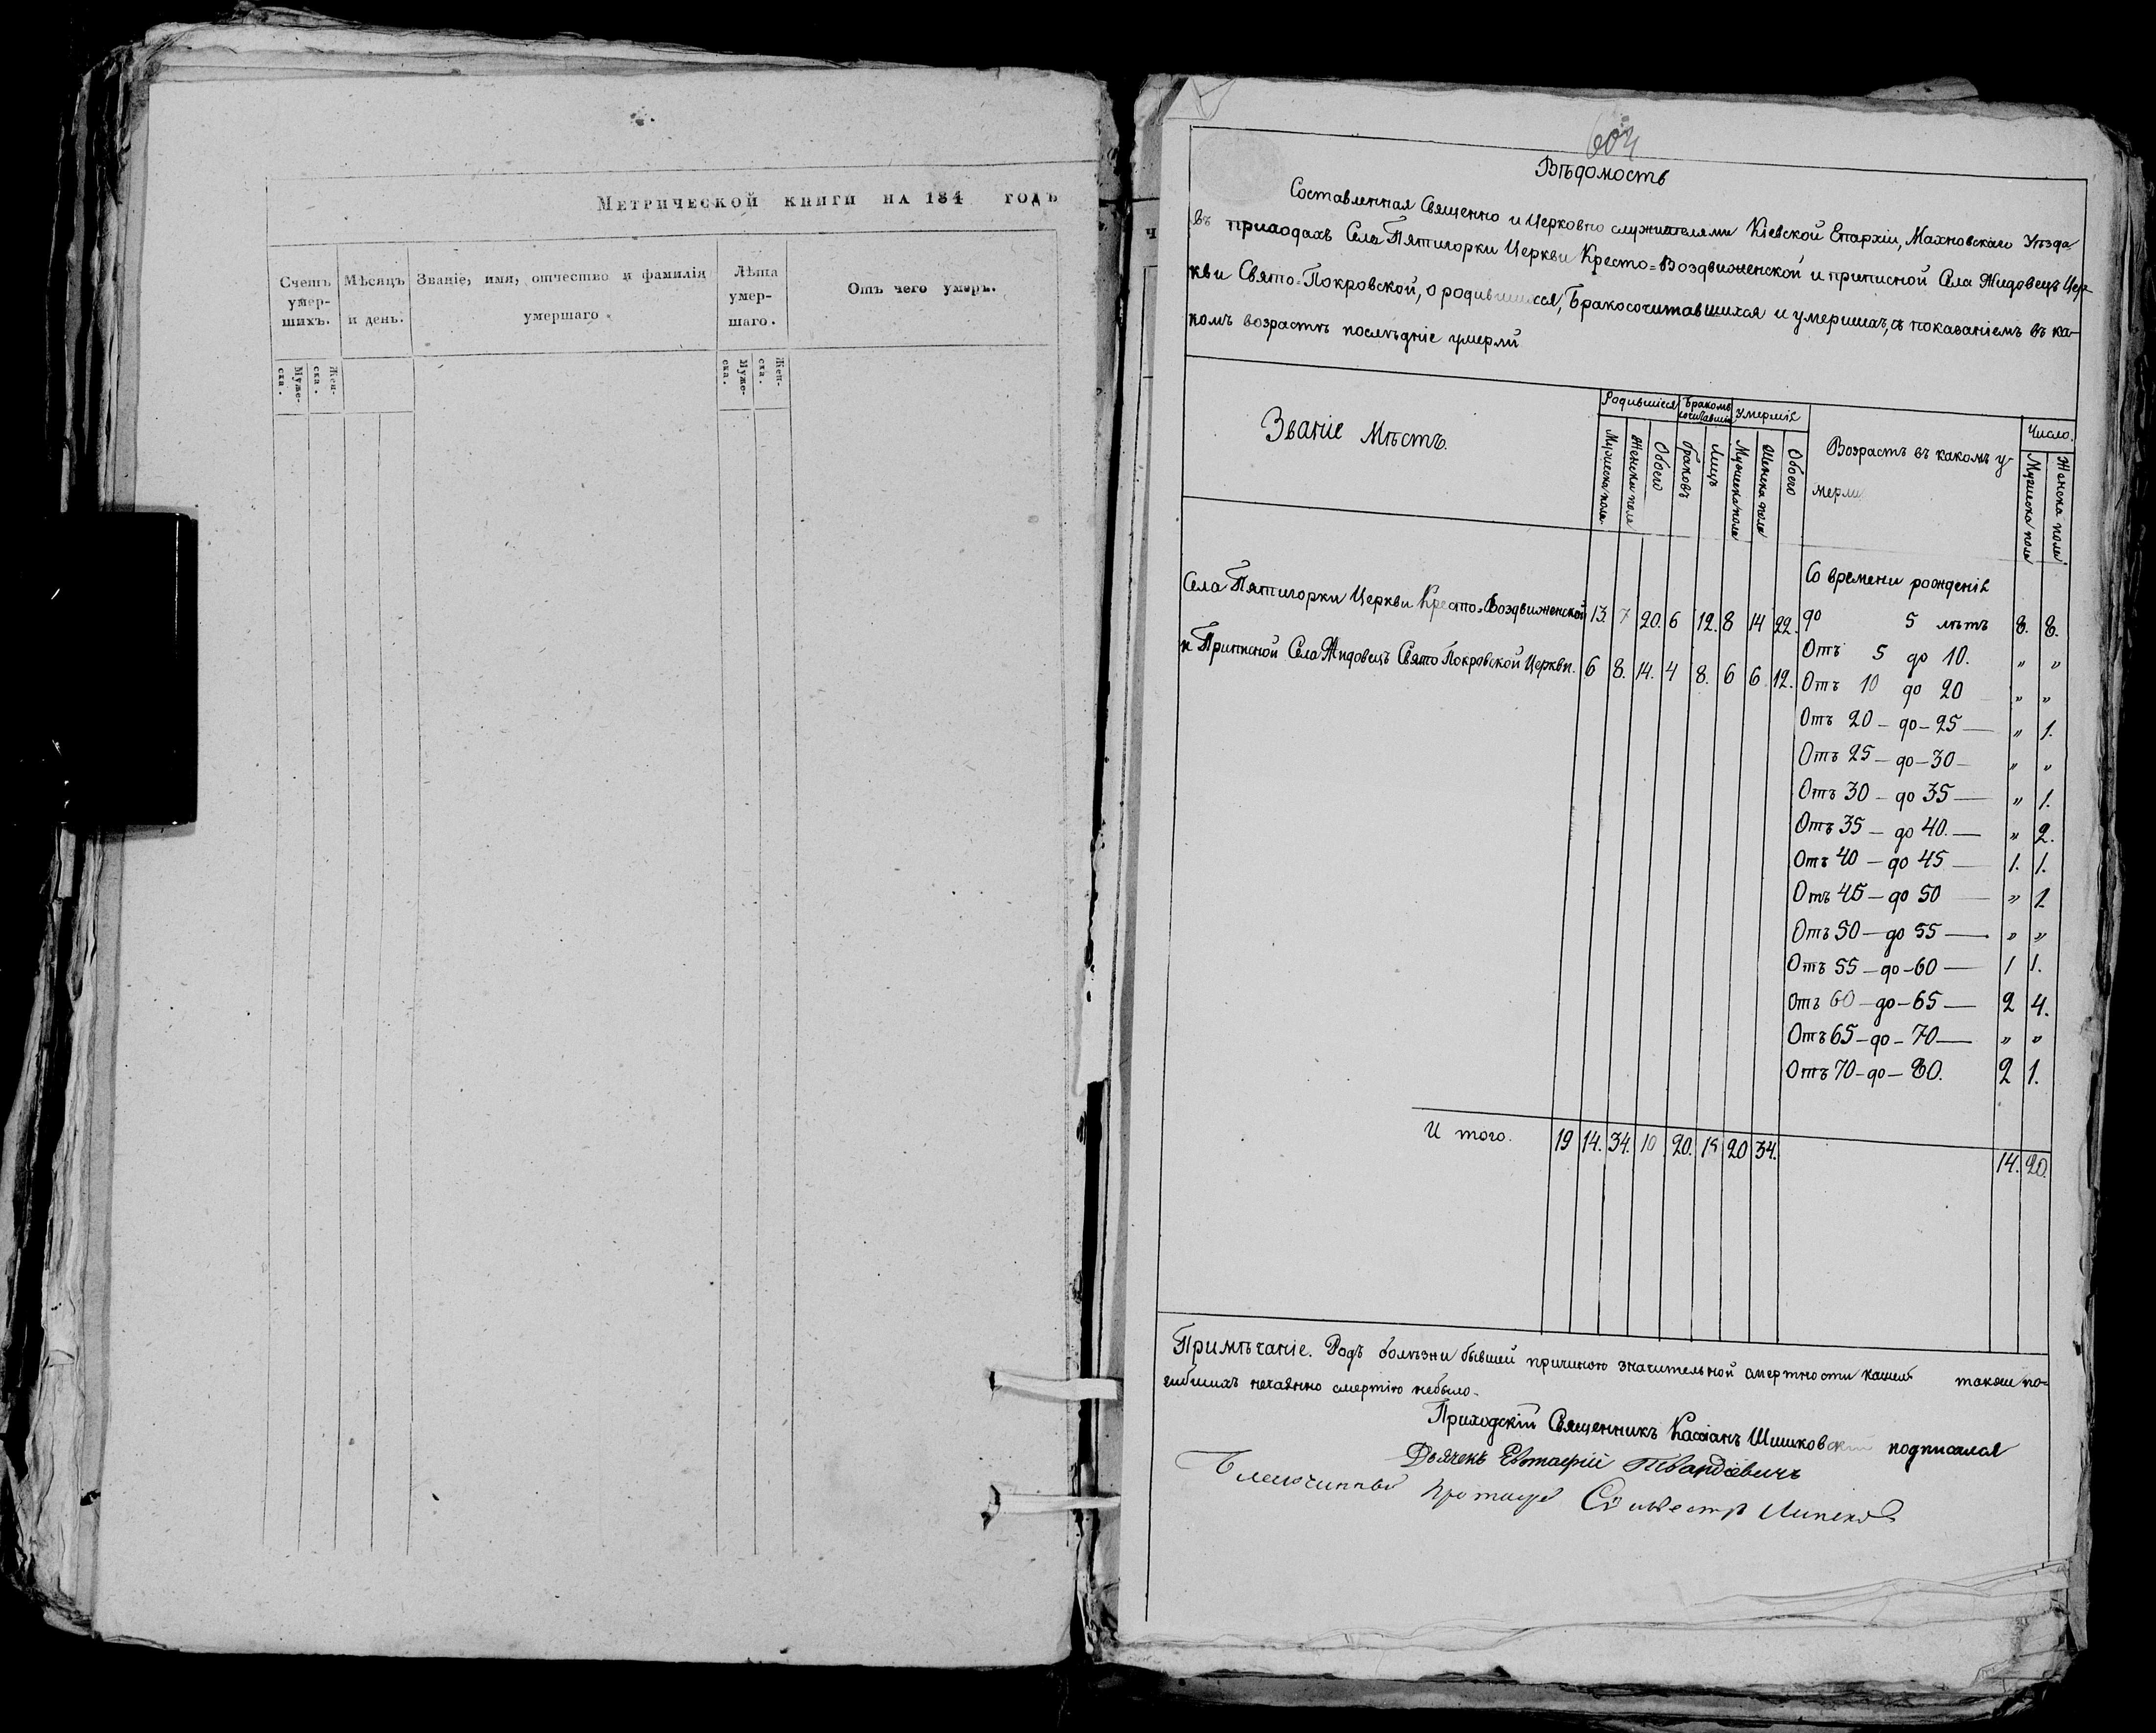 Метрической книги на 184 годъ
Счетъ умер-шихъ.
Мѣсяцъ и день.
Званіе, имя, отчество и фамилія умершаго.
Лѣта умер-шаго.
Отъ чего умеръ.
Муже-ска.
Жен-ска.
Муже-ска.
Жен-ска.
604
Вѣдомость
Составленная Священно и Церковно служителями Кіевской Епархіи, Махновскаго Уѣзда
въ приходахъ Села Пятигорки Церкви Кресто=Воздвиженской и приписной Села Жидовецъ Цер-
кви Свято=Покровской, о родившихся, Бракосочитавшихся и умершихъ, съ показаніемъ въ ка-
комъ возрастѣ послѣдніе умерли
Званіе Мѣстъ.
Родившіеся
Бракомъ сочитавшіи
Умершіе
Возрастъ въ какомъ у-
мерли
Число.
Мужеска пола.
Женска пола
Обоего
Браковъ
Лицъ
Мужеска пола
Женска пола
Обоего
Мужеска пола
Женска пола
Со времени рожденіе
Села Пятигорки Церкви Кресто=Воздвиженской 13. 7 20. 6 12. 8 14 22. до 5 лѣтъ 8. 8.
и Приписной Села Жидовецъ Свято Покровской Церкви. 6 8. 14. 4 8. 6 6 12.
Отъ 5 до 10. " "
Отъ 10 до 20 " "
Отъ 20 – до – 25 — " 1.
Отъ 25 – до – 30 – " "
Отъ 30 – до 35 — " 1.
Отъ 35 – до 40. — " 2.
Отъ 40 – до 45 — 1. 1.
Отъ 45 – до 50 — " 1
Отъ 50 – до 55 — " "
Отъ 55 – до – 60 — 1 1.
Отъ 60 – до – 65 — 2 4.
Отъ 65 – до – 70 — " "
Отъ 70 – до – 80. 2 1.
И того. 19 14. 34. 10 20. 14 20 34. 14. 20.
Примѣчаніе. Родъ болѣзни бывшей причиною значительной смертности кашель также по=
гибшихъ нечаянно смертію небыло.
Приходскій Священникъ Касіанъ Шишковскій подписался
Дьячекъ Евтафій Твардіевичъ
Благочинный Сильвестръ